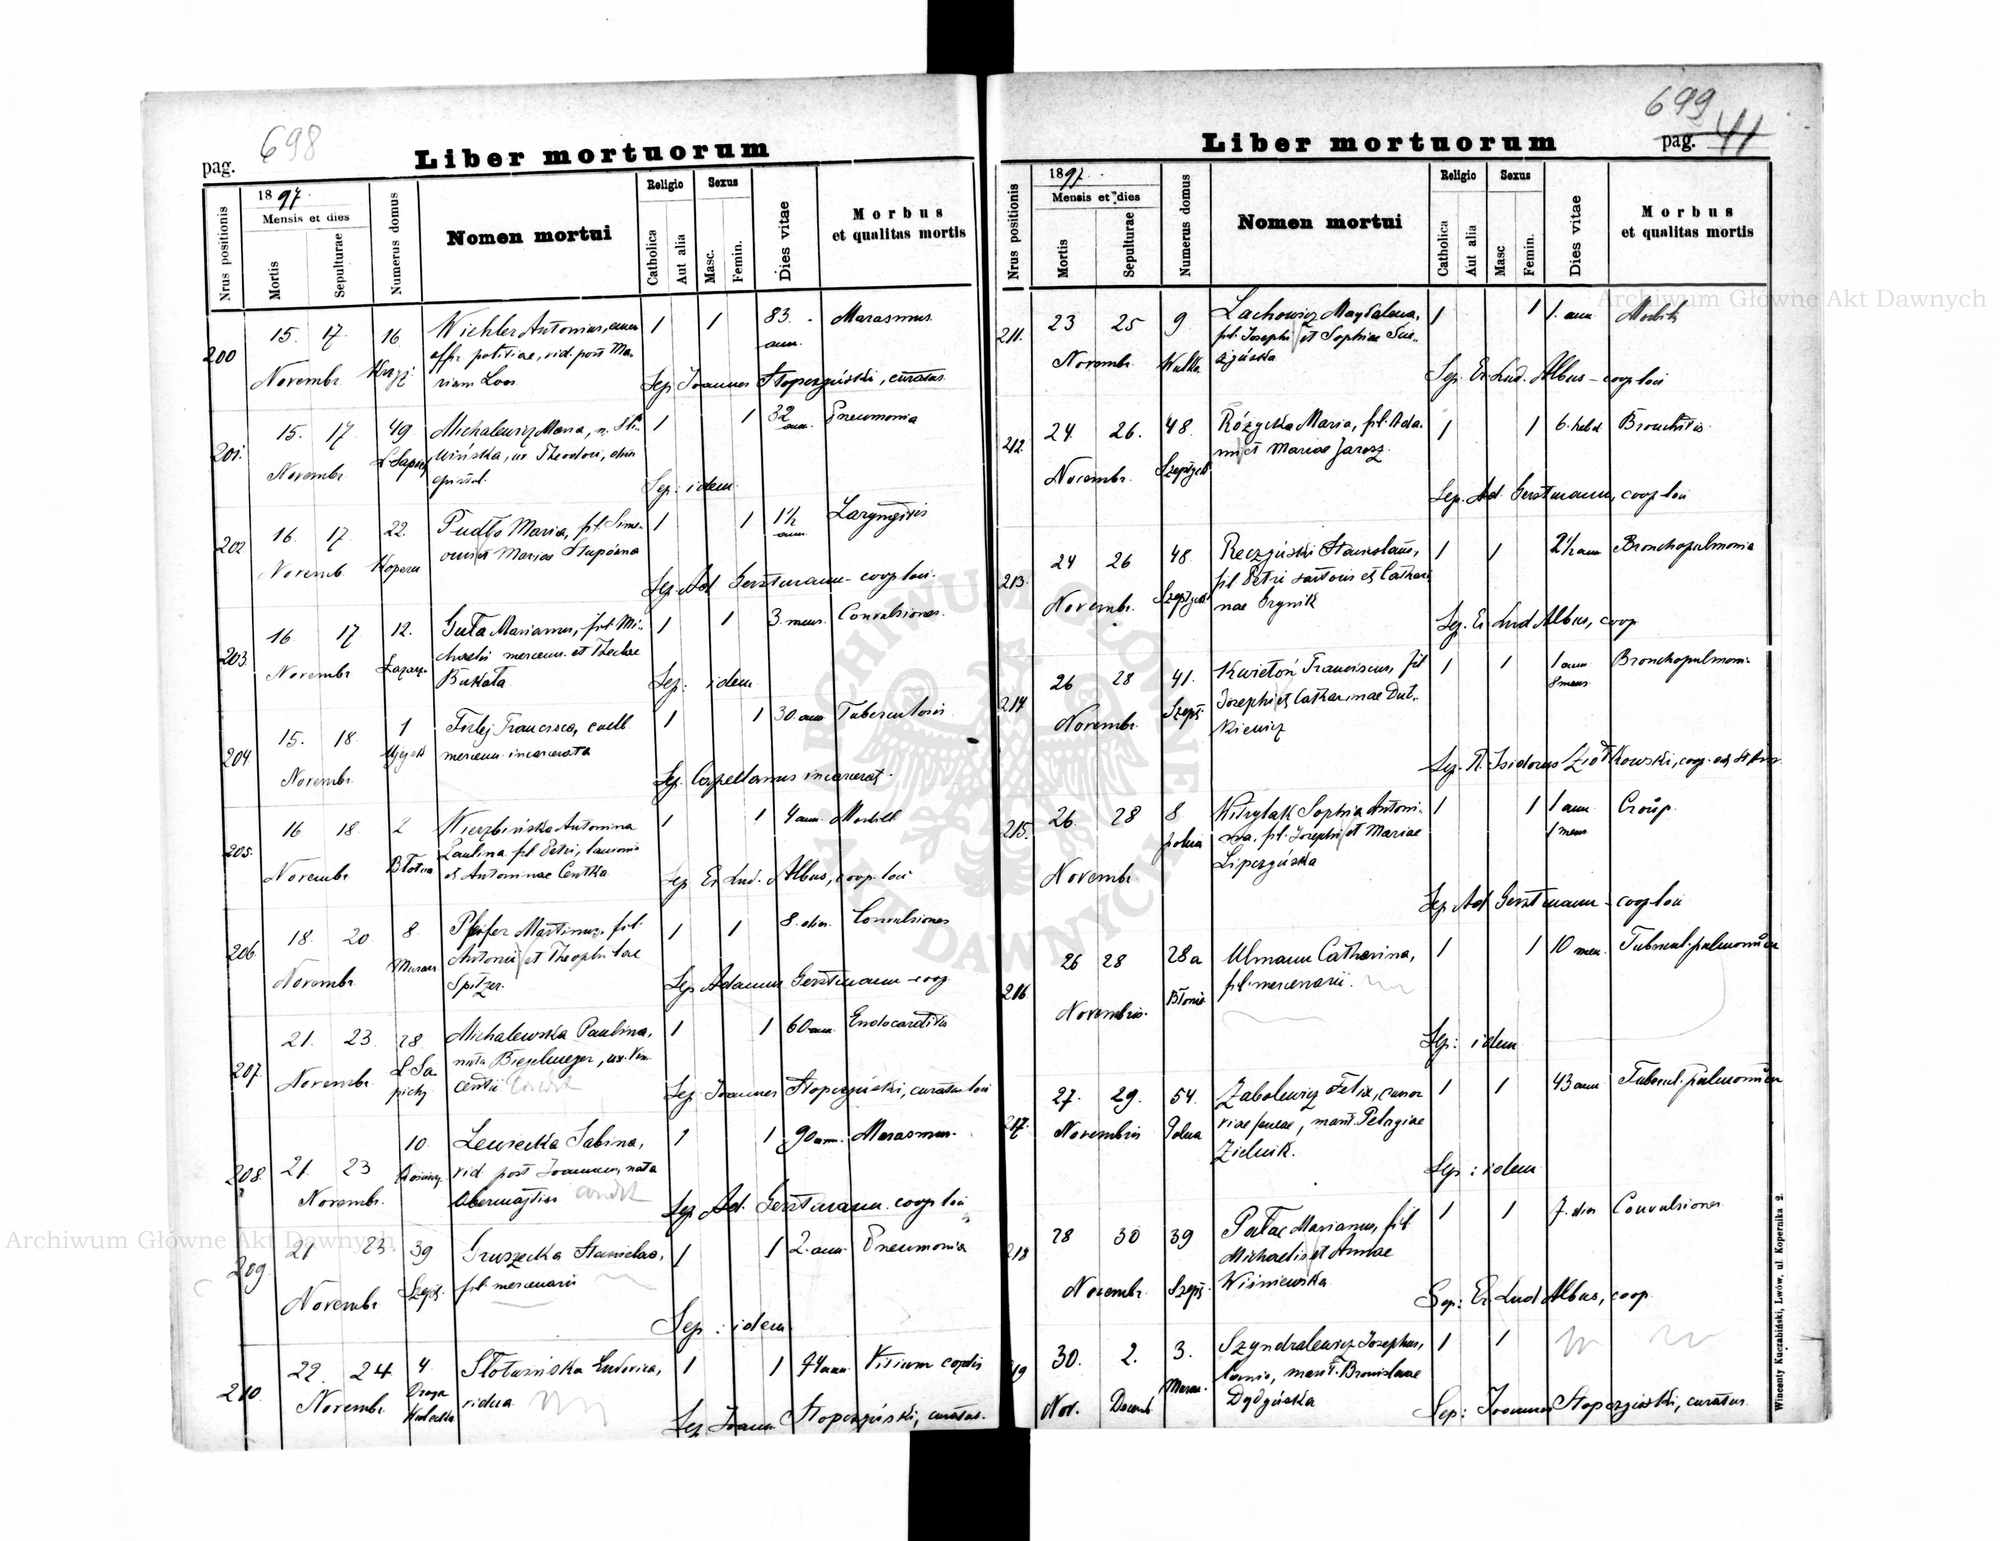 698
pag.
Liber mortuorum
Nrus positionis
1897
Mensis et dies
Mortis
Sepulturae
Numerus domus
Nomen mortui
Religio
Catholica
Aut alia
Sexus
Masc.
Femin.
Dies vitae
Morbus
et qualitas mortis
200
15. 17. 16
Novembr.
Wichler Antonius,
offic. politiae, vid. post Ma-
riam Loos
1 1 83. ann. Marasmus
Sep. Joannes Stopczyński, curatus
201.
15. 17 49
Novembr. L Sapiehy
Michalewicz Maria, n. Śli-
wińska, ux Theodori,
1 1 32 ann. Pneumonia
Sep: idem
202
16. 17. 22.
Novemb. Kopern
Pudło Maria, fil. Simo-
et Mariae Stupórna
1 1 1½ ann. Laryngitis
Sep. Ad Gerstmann - coop loci.
203
16 17 12.
Novembr Łazarz.
Guta Marianus, fil. Mi-
chaelis mercenn. et Theclae
Bukata
1 1 3. mens. Convulsiones
Sep: idem
204
15. 18. 1
Novembr.
Francisca, caelb
mercenn incarcerata
1 1 30. ann Tuberculosis
Sep. Capellanus incarcerat.
205.
16 18 2
Novembr Błotna
Wierzbińska Antonina
Paulina fil Petri,
et Antoninae Centka
1 1 4 ann. Morbilli
Sep Er Lud. Albus, coop loci
206
18. 20 8.
Novembr Murars
Pfeifer Martinus, fil.
Antonii et Theophilae
Spitzer.
1 1 8. dies. Convulsiones
Sep Adamus Gerstmann - coop
207.
21. 23 28
Novembr. L Sa
piehy
Michalewska Paulina,
nata Biegelmeyer, ux. Vin
centii
1 1 60 ann. Endocarditis
Sep Joannes Stopczyński, curatus loci
208.
10.
21. 23
Novembr.
Lewicka Sabina,
vid post Joannem, nata
1 1 90 ann. Marasmus.
Sep Ad. Gerstmann coop loci
209
21 23. 39
Novembr Szept.
Gruszecka Stanislaa,
fil mercenarii
1 1 2. ann. Pneumonia
Sep: idem
210.
22. 24 4.
Novembr. Droga
Wulecka
Słotwińska Ludovica,
vidua
1 1 74 ann Vitium cordis
Sep Joann Stopczyński, curatus.
699
pag. 41
Liber mortuorum
Nrus positionis
1897.
Mensis et dies
Mortis
Sepulturae
Numerus domus
Nomen mortui
Religio
Catholica
Aut alia
Sexus
Masc
Femin.
Dies vitae
Morbus
et qualitas mortis
211.
23 25 9
Novembr. Wulka
Lachowicz Magdalena,
fil. Josephi et Sophiae
1 1 1. ann Morbili
Sep. Er. Lud. Albus - coop loci
212.
24. 26. 48.
Novembr. Szeptyck
Różycka Maria, fil. Ada-
mi et Mariae Jarosz
1 1 6. hebd Bronchitis.
Sep. Ad. Gerstmann, coop loci
213.
24 26 48.
Novembr. Szeptyck
Reczyński Stanislaus,
fil Petri sartoris et Cathari
nae Prynik
1 1 2½ ann Bronchopulmonia
Sep. Er. Lud Albus, coop
214
26 28 41.
Novembr. Szept.
Kwietoń Franciscus, fil
Josephi et Catharinae Dut-
kiewicz
1 1 1 ann 8 mens Bronchopulmoni-
Sep. R. Isidorus Ziołkowski, coop. ad St Ann
215.
26. 28 8
Novembr. polna
Witrylak Sophia Antoni-
na, fil. Josephi et Mariae
Lipczyńska
1 1 1 ann 1 mens. Croup.
Sep Ad Gerstmann - coop loci
216
26 28 28a
Novembris. Błonie
Ulmann Catharina,
fil. mercenarii.
1 1 10 men. Tubercul. pulmonum
Sep: idem
217.
27. 29. 54.
Novembris Polna
Zabolewicz Felix,
viae ferreae, marit. Pelagiae
Zielnik.
1 1 43 ann Tubercul. pulmonum
Sep: idem
218
28 30 39
Novembr. Szept.
Pałac Marianus, fil
Michaelis et Annae
Wiśniewska
1 1 7. dies Convulsiones
Sep: Er Lud Albus, coop.
219
30. 2. 3.
Nov. Decemb Murar.
Szyndralewicz Josephus,
marit. Bronislavae
Dydyńska
1 1
Sep: Joannes Stopczyński, curatus
Wincenty Kuczabiński, Lwów, ul Kopernika 2.
Archiwum Główne Akt Dawnych
Archiwum Główne Akt Dawnych
ARCHIWUM GŁÓWNE AKT DAWNYCH